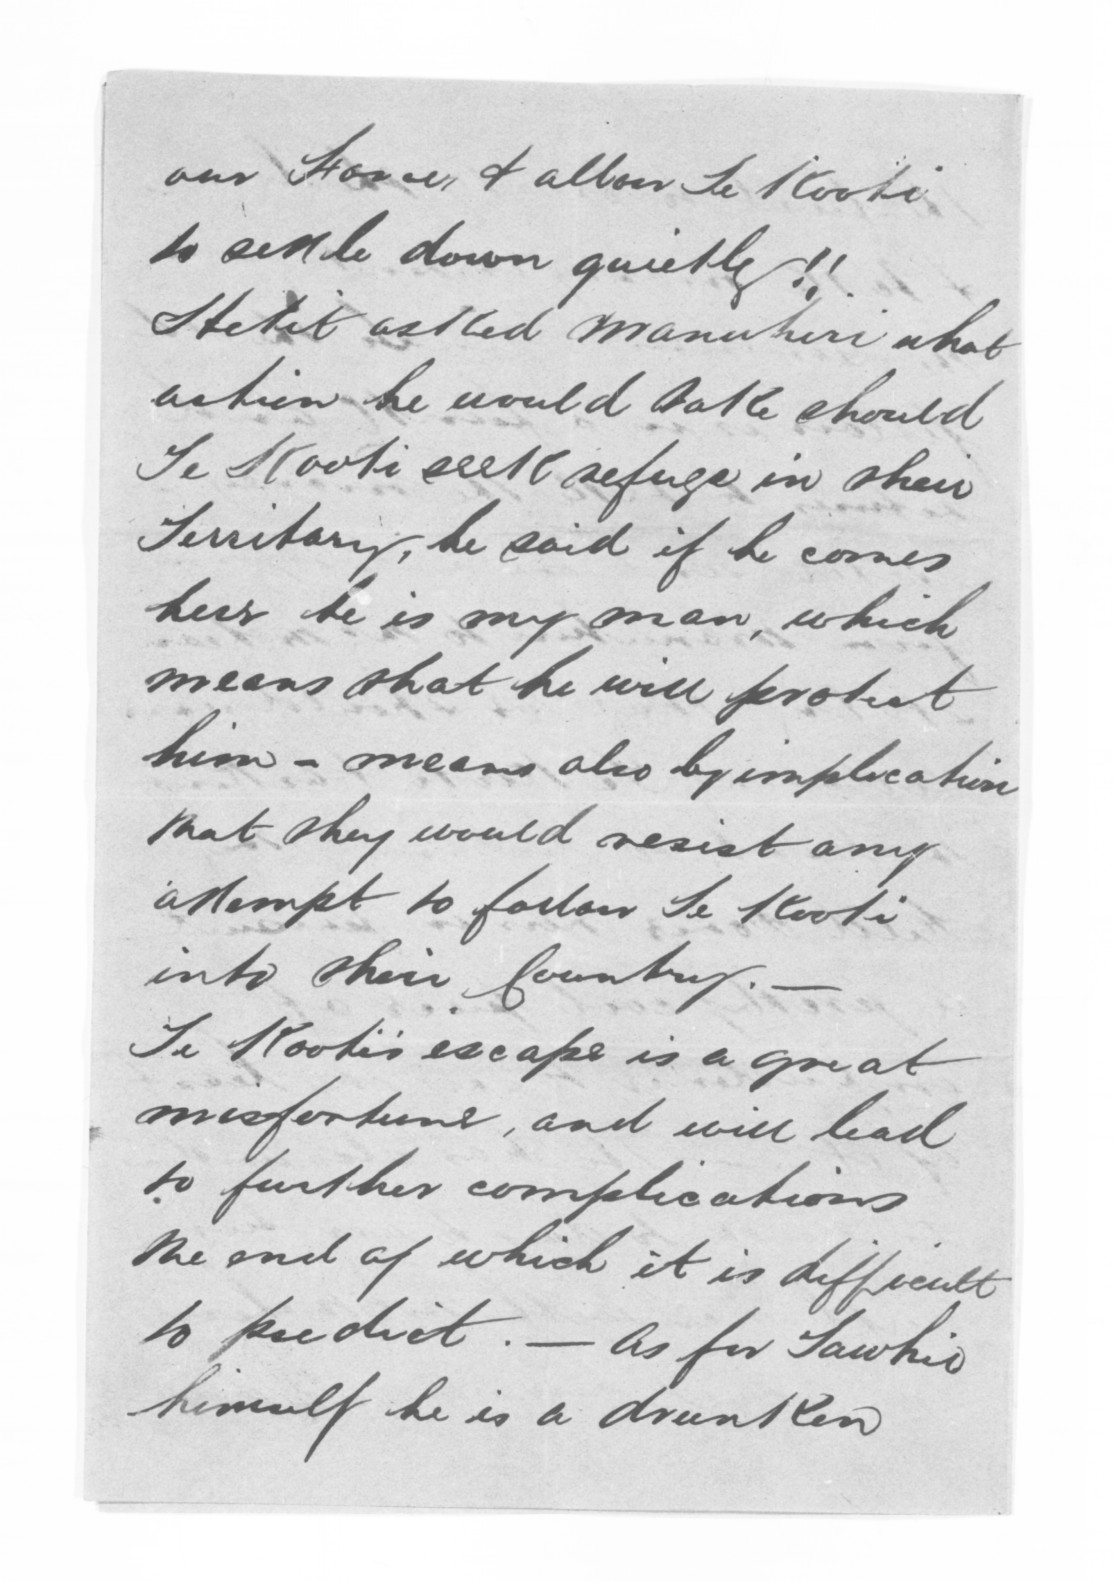 our Force, & allow Te Kooti
to settle down quietly!!
Hetit asked Manuhiri what
action he would take should
Te Kooti seek refuge in their
Territory, he said if he comes
here he is my man, which
means that he will protect
him - means also by implication
that they would resist any
attempt to follow Te Kooti
into their Country. —
Te Kooti's escape is a great
misfortune, and will lead
to further complications
the end of which it is difficult
to predict. — As for Tawhio
himself he is a drunken